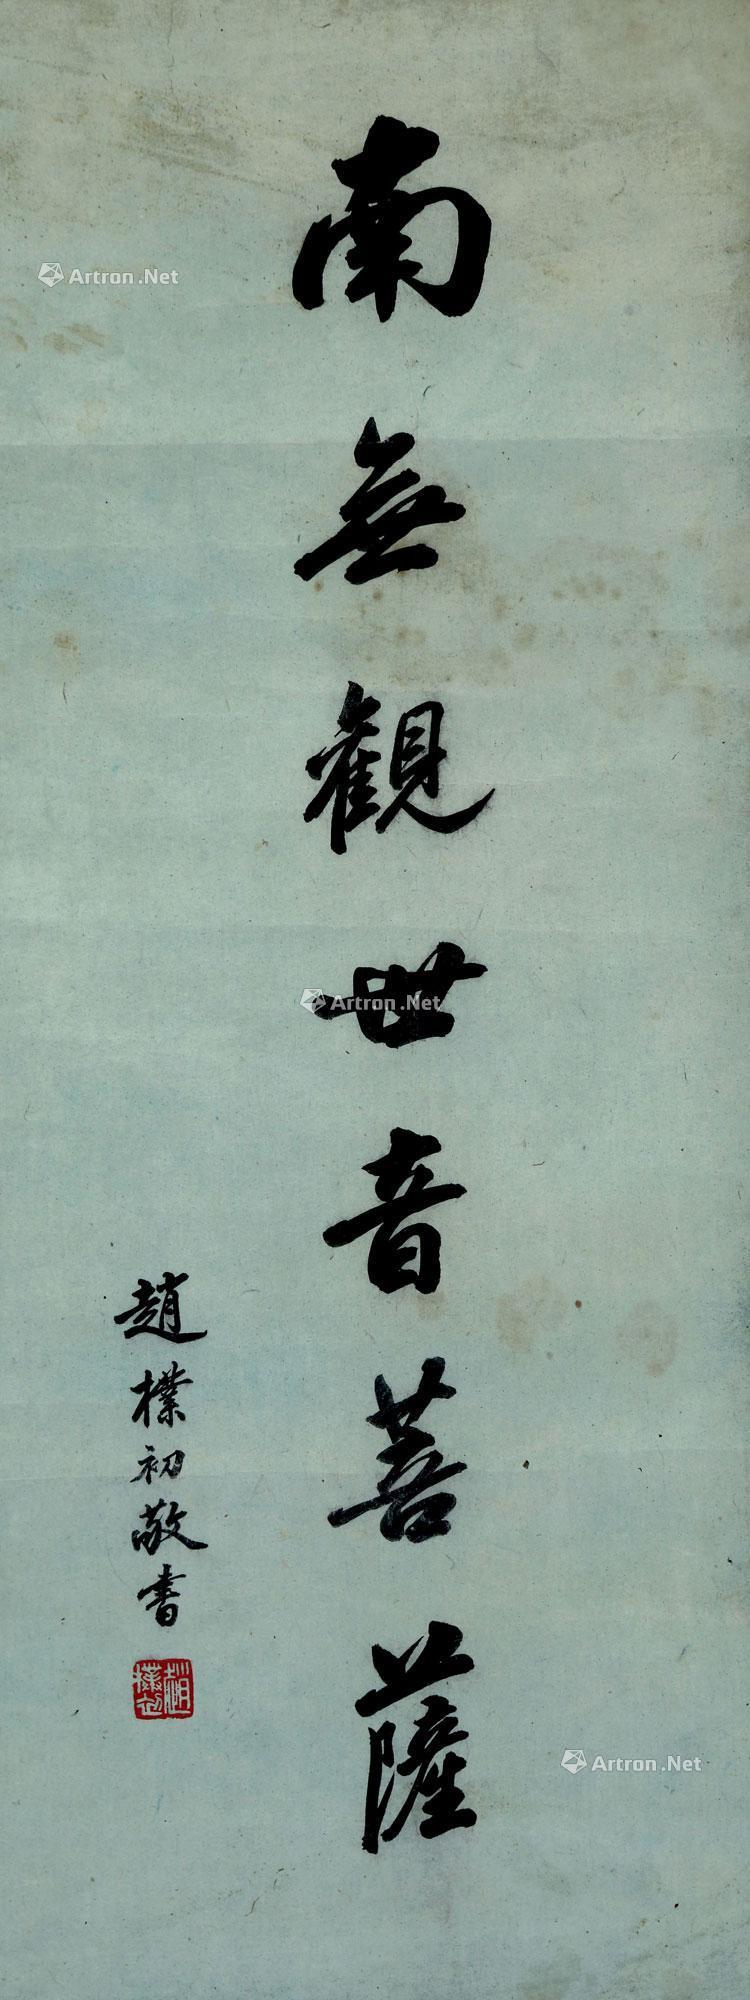 南無觀世音菩薩
趙樸初敬書
趙樸初
Artron.Net
Artron.Net
Artron.Net